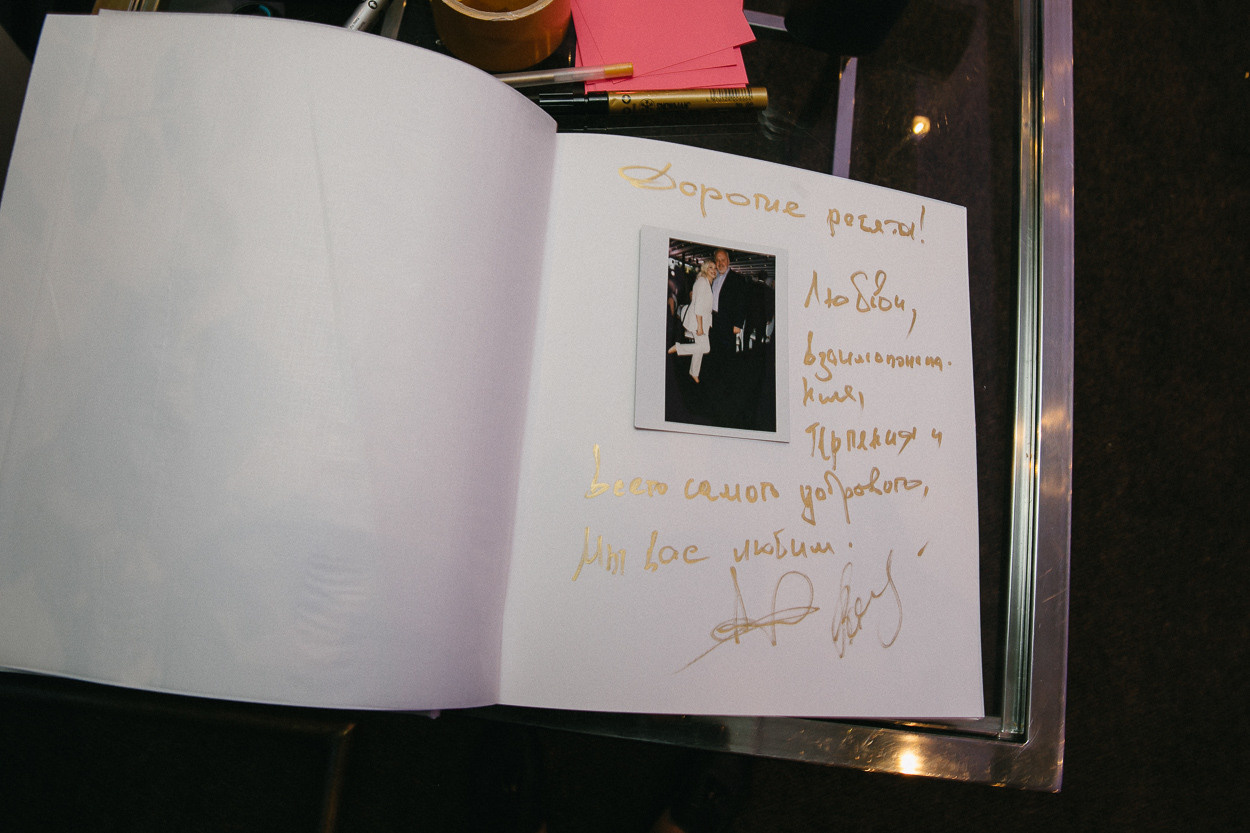 Дорогие ребята!
Любви,
взаимопонима-
ния,
Терпения и
всего самого доброго,
Мы вас любим.